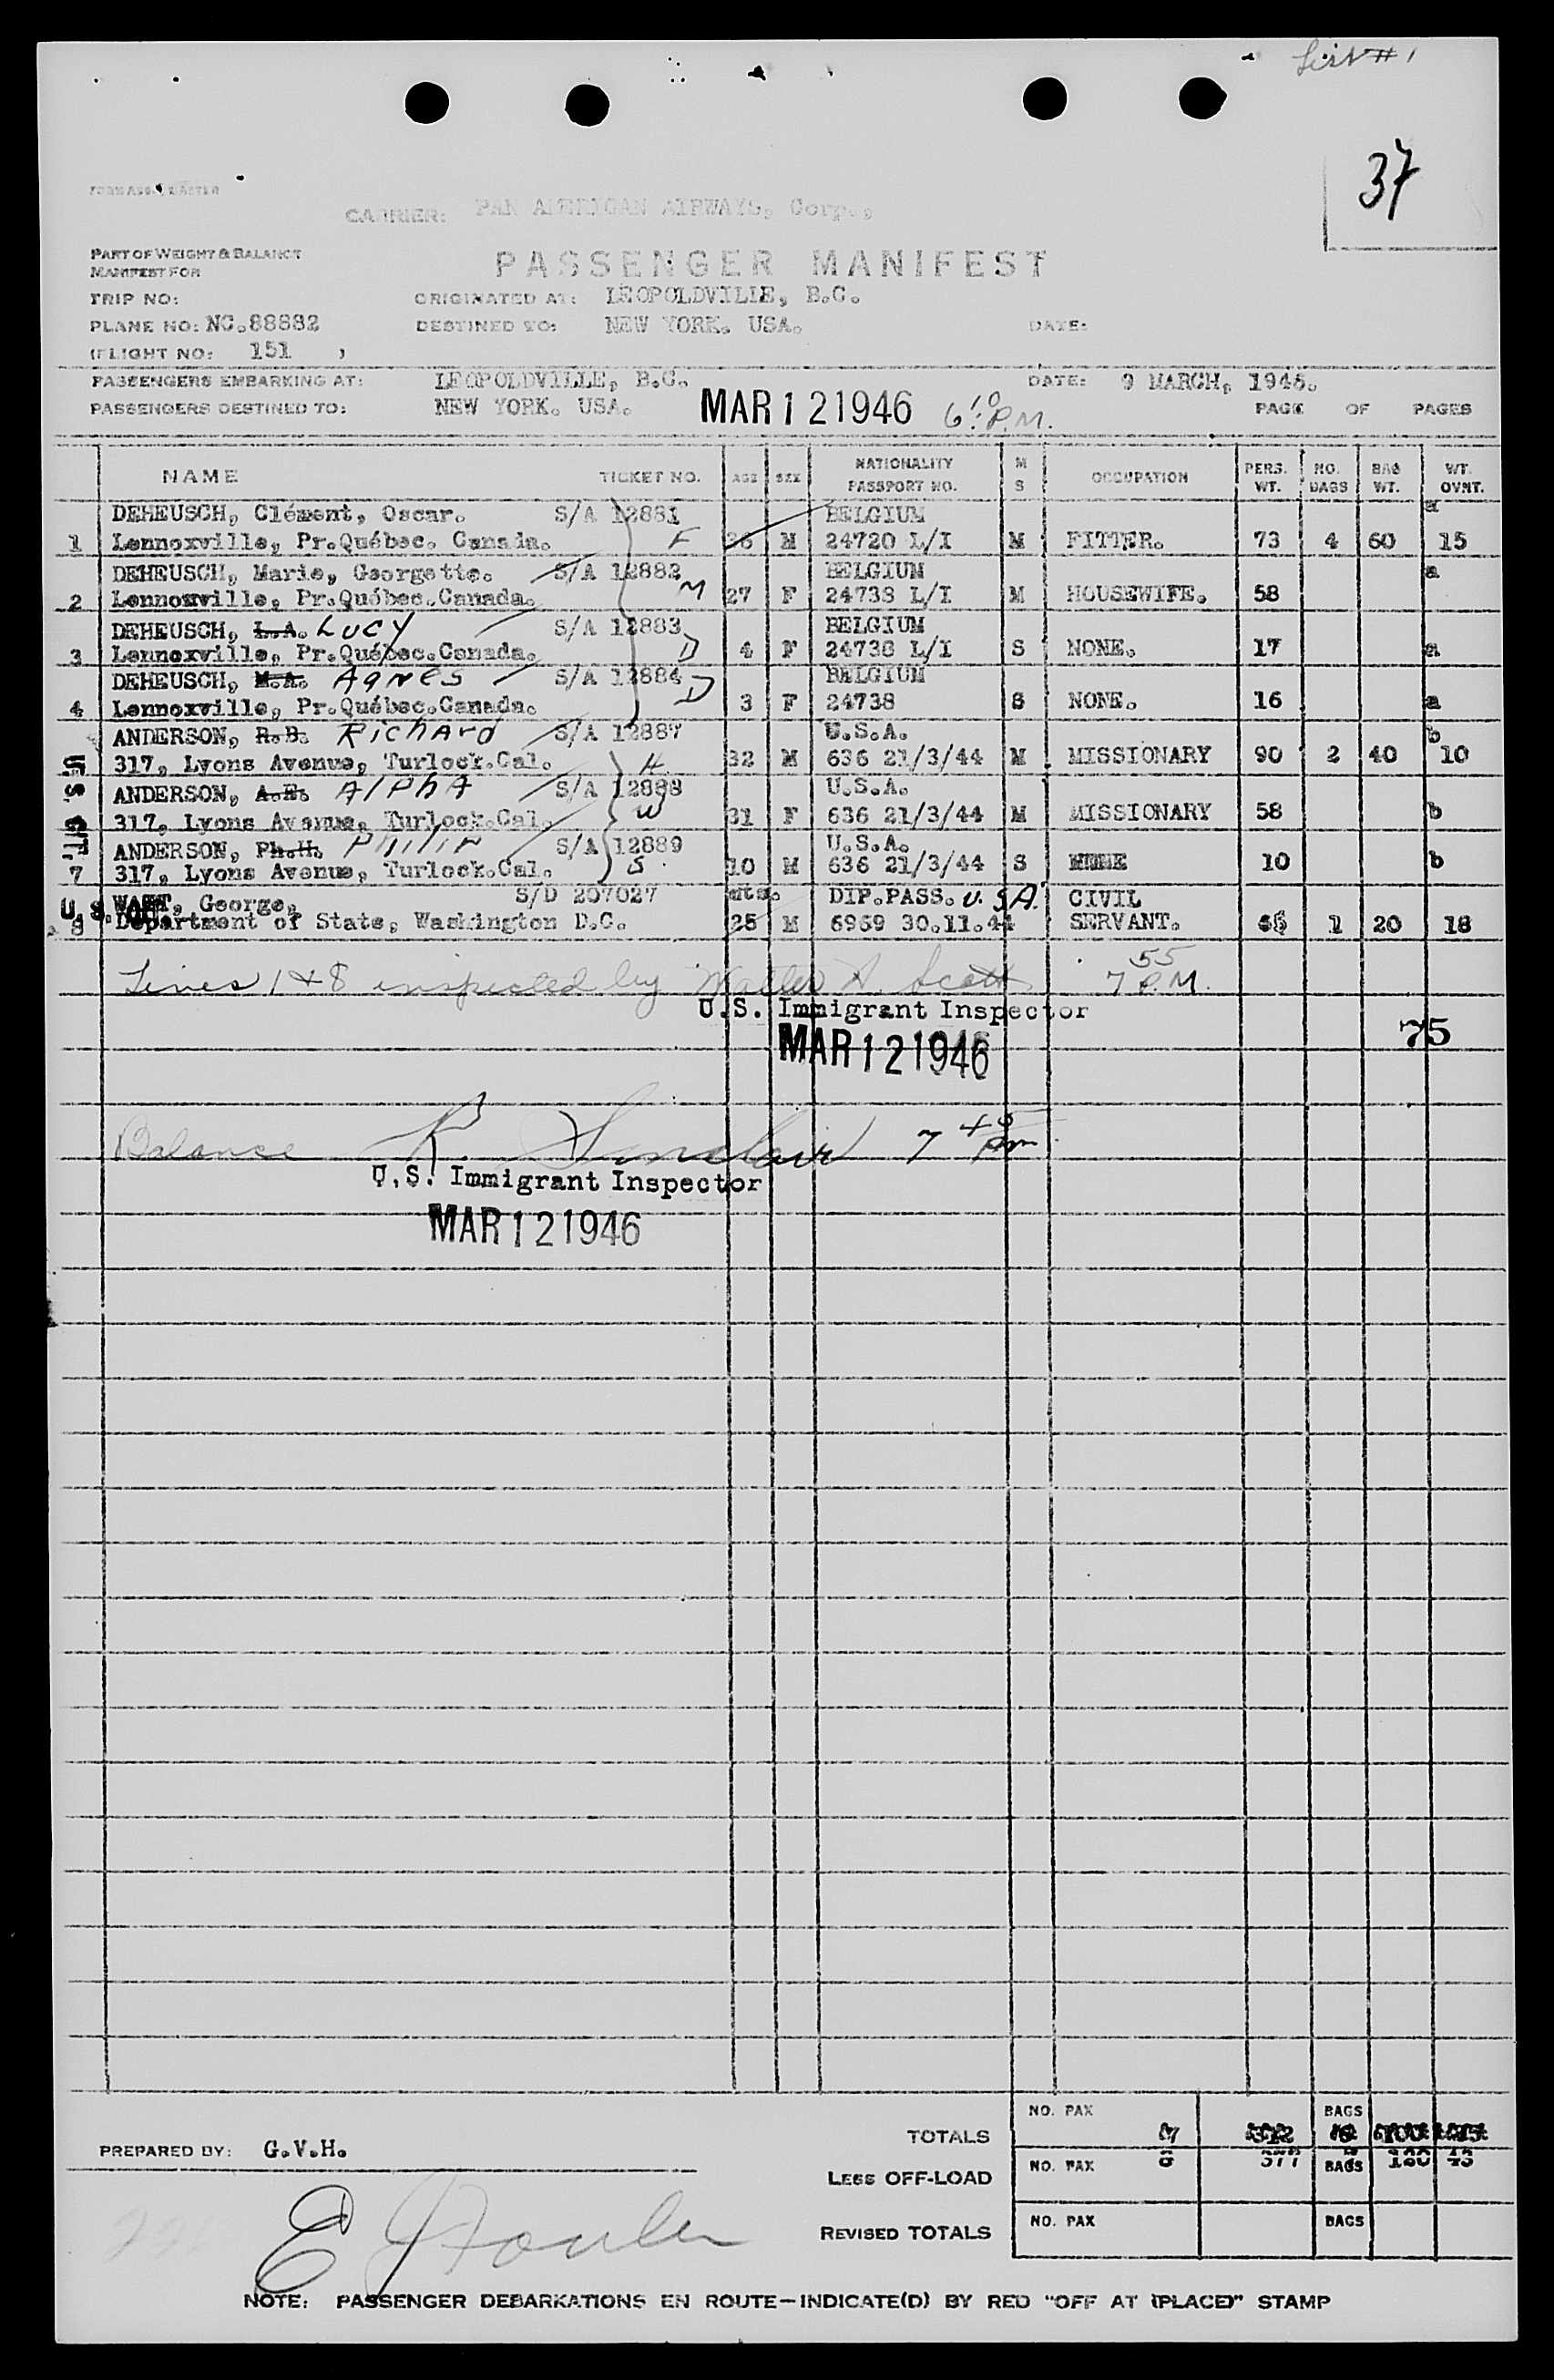 List # 1
37
CARRIER: PAN AMERICAN AIRWAYS, Corp.,
PART OF WEIGHT & BALANCE
MANIFEST FOR
PASSENGER MANIFEST
TRIP NO:
ORIGINATED AT: LEOPOLDVILLE, B.C.
PLANE NO: NC.88882
DESTINED TO: NEW YORK. USA.
DATE:
(FLIGHT NO: 151 )
PASSENGERS EMBARKING AT: LEOPOLDVILLE, B.C.
DATE: 9 MARCH, 1946.
PASSENGERS DESTINED TO: NEW YORK. USA.
MAR 12 1946 6:10 P.M.
PAGE OF PAGES
NAME TICKET NO. AGE SEX NATIONALITY PASSPORT NO. M S OCCUPATION PERS. WT. NO. BAGS BAG WT. WT. OVNT.
DEHEUSCH, Clément, Oscar. S/A 12881 BELGIUM a
1 Lennoxville, Pr.Québec. Canada. F 36 M 24720 L/I M FITTER. 73 4 60 15
DEHEUSCH, Marie, Georgette. S/A 12882 BELGIUM a
2 Lennoxville, Pr.Québec.Canada. M 27 F 24738 L/I M HOUSEWIFE. 58
DEHEUSCH, L.A. LUCY S/A 12883 BELGIUM
3 Lennoxville, Pr.Québec.Canada. D 4 F 24738 L/I S NONE. 17 a
DEHEUSCH, M.A. AGNES S/A 12884 BELGIUM
4 Lennoxville, Pr.Québec.Canada. D 3 F 24738 S NONE. 16 a
ANDERSON, R.B. Richard S/A 12887 U.S.A. b
317, Lyons Avenue, Turlock.Cal. H 32 M 636 21/3/44 M MISSIONARY 90 2 40 10
ANDERSON, A.E. Alpha S/A 12888 U.S.A.
317, Lyons Avenue, Turlock.Cal. W 31 F 636 21/3/44 M MISSIONARY 58 b
ANDERSON, Ph.H. Philip S/A 12889 U.S.A.
7 317, Lyons Avenue, Turlock.Cal. S 10 M 636 21/3/44 S NONE 10 b
George, S/D 207027 mts. DIP.PASS. U.S.A. CIVIL
8 Department of State, Washington D.C. 25 M 6969 30.11.44 SERVANT. 65 1 20 18
Lines 1+8 inspected by Walter A. Scott 7 55 P.M.
U.S. Immigrant Inspector
75
MAR 12 1946
Balance R. Sinclair 7 45 pm.
U.S. Immigrant Inspector
MAR 12 1946
NO. PAX BAGS
TOTALS 7 312 6 100
PREPARED BY: G.V.H.
LESS OFF-LOAD NO. PAX 8 377 BAGS 7 120 43
REVISED TOTALS NO. PAX BAGS
NOTE: PASSENGER DEBARKATIONS EN ROUTE—INDICATE(D) BY RED "OFF AT (PLACE)" STAMP